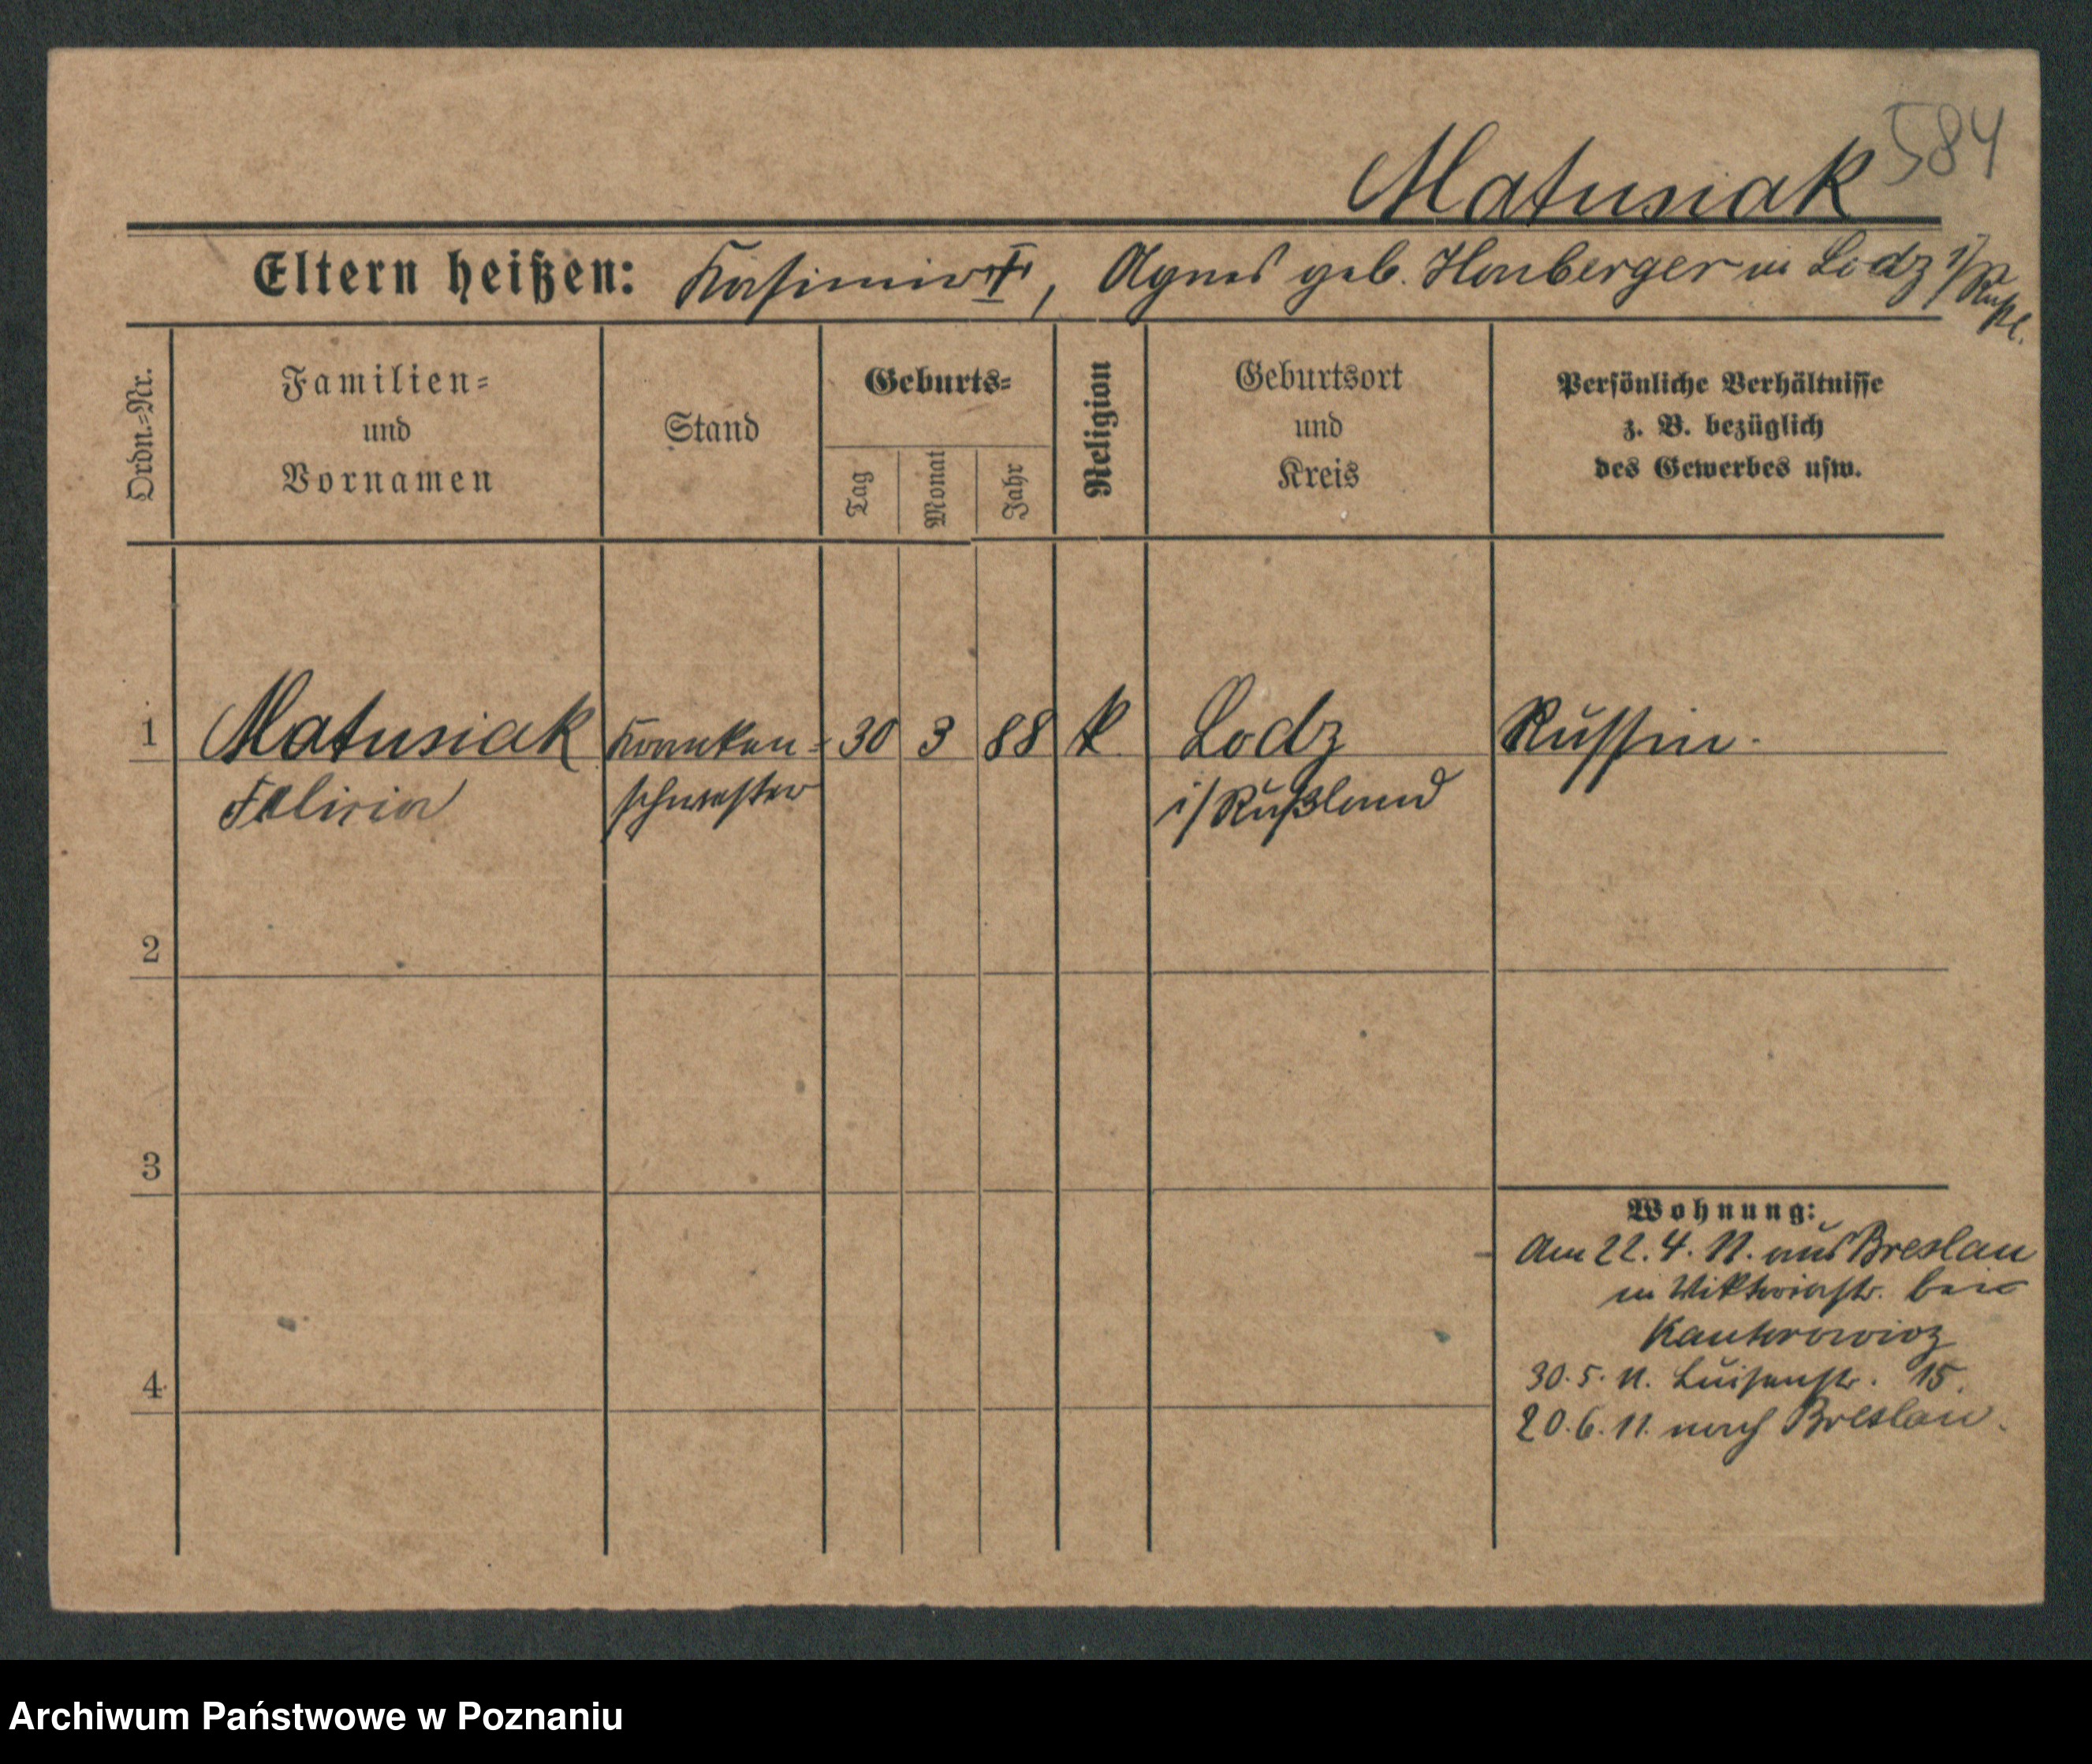 584
Matusiak
Eltern heißen: Kasimir †, Agnes geb. Honberger in Lodz i/Rußl.
Ordn.-Nr.
Familien-
und
Vornamen
Stand
Geburts-
Tag
Monat
Jahr
Religion
Geburtsort
und
Kreis
Persönliche Verhältnisse
z. B. bezüglich
des Gewerbes usw.
1 Matusiak Kranken- 30 3 88 k. Lodz Russin.
Felicia schwester i/Rußland
2
3
Wohnung:
Am 22. 4. 11. aus Breslau
in Viktoriastr. bei
Kantorowicz
30. 5. 11. Luisenstr. 15.
4
20. 6. 11. nach Breslau.
Archiwum Państwowe w Poznaniu